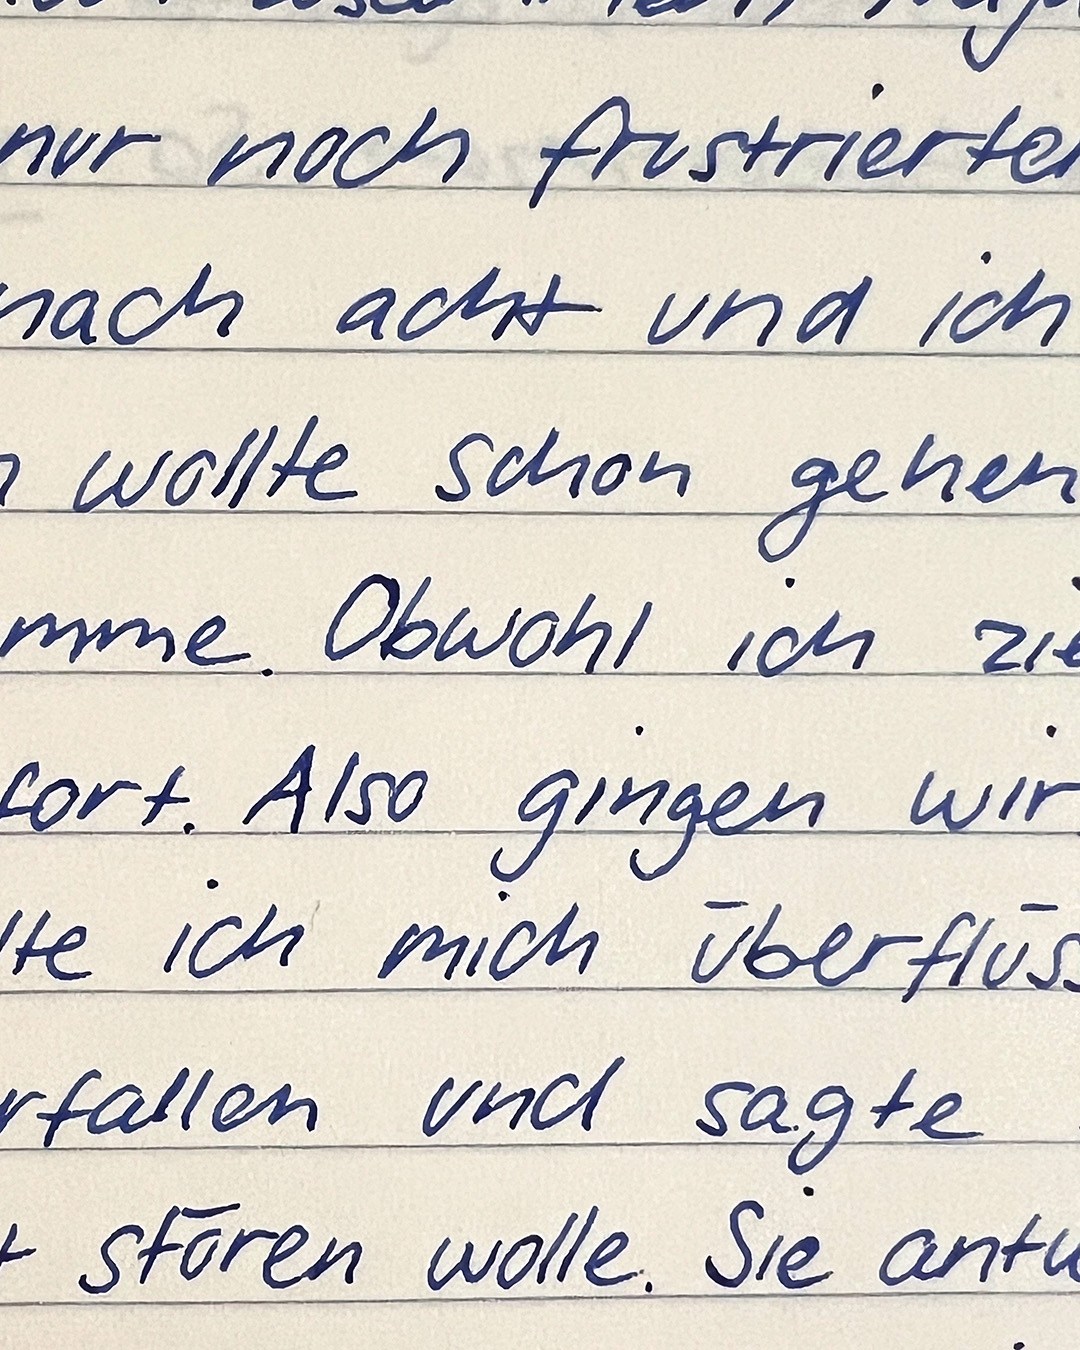 nur noch frustrierter
nach acht und ich
wollte schon gehen
mme. Obwohl ich zie
fort. Also gingen wir
lte ich mich überflüss
rfallen und sagte
stören wolle. Sie antw